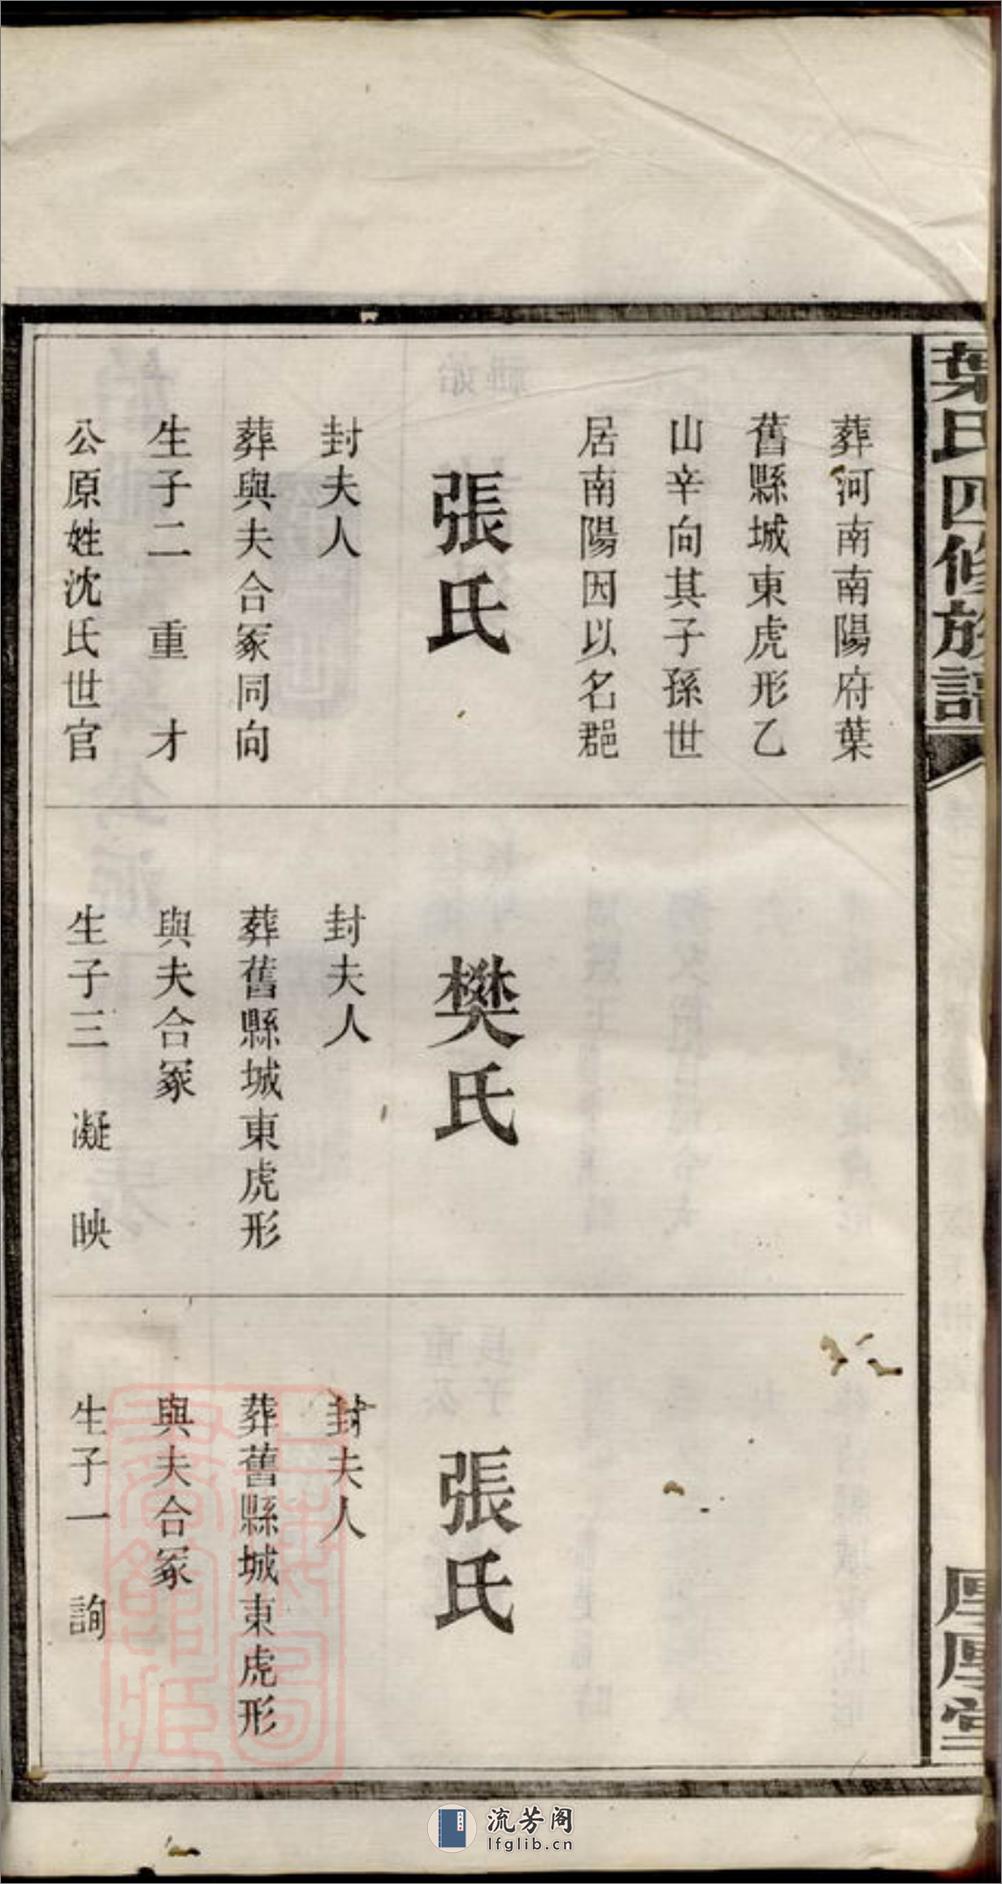 葉氏四修族譜
厚厚堂
葬河南南陽府葉
舊縣城東虎形乙
山辛向其子孫世
居南陽因以名郡
張氏
封夫人
葬與夫合冢同向
生子二 重 才
公原姓沈氏世官
樊氏
封夫人
葬舊縣城東虎形
與夫合冢
生子三 凝 映
張氏
封夫人
葬舊縣城東虎形
與夫合冢
生子一 詢
流芳阁
lfglib.cn